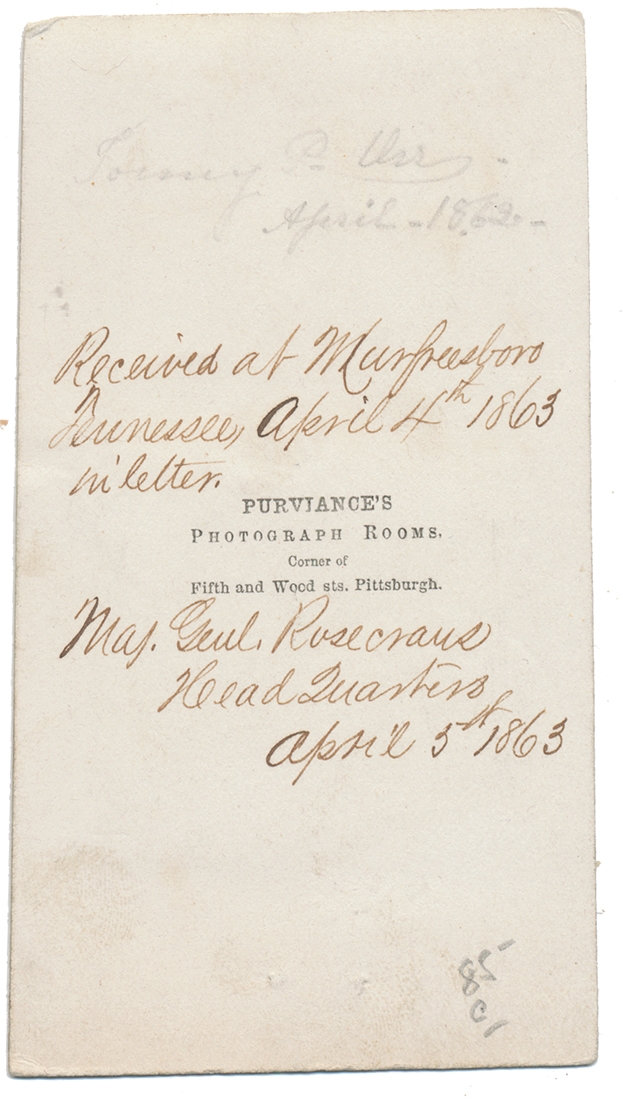 April - 1862 -
Received at Murfreesboro
Tennessee, April 4th 1863
in letter.
PURVIANCE'S
PHOTOGRAPH ROOMS.
Corner of
Fifth and Wood sts. Pittsburgh.
Maj. Genl. Rosecrans
Head Quarters
April 5st 1863